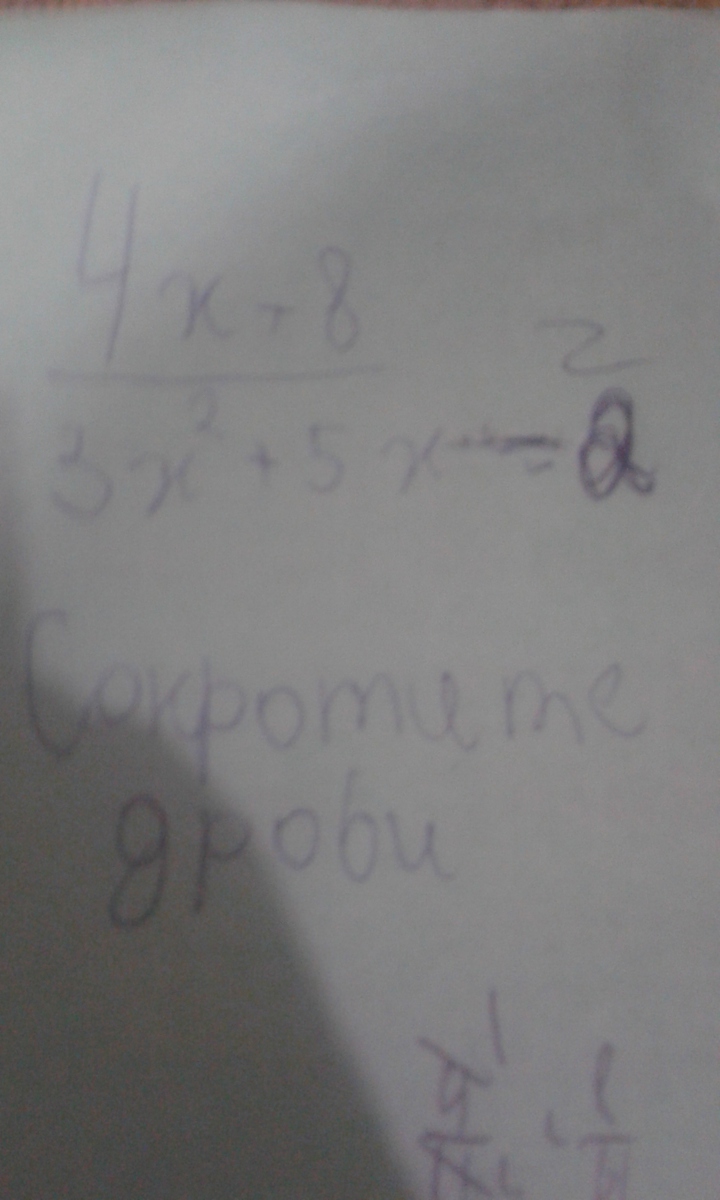 4x + 8
3x² + 5x - 2
2
Сокротите
дроби